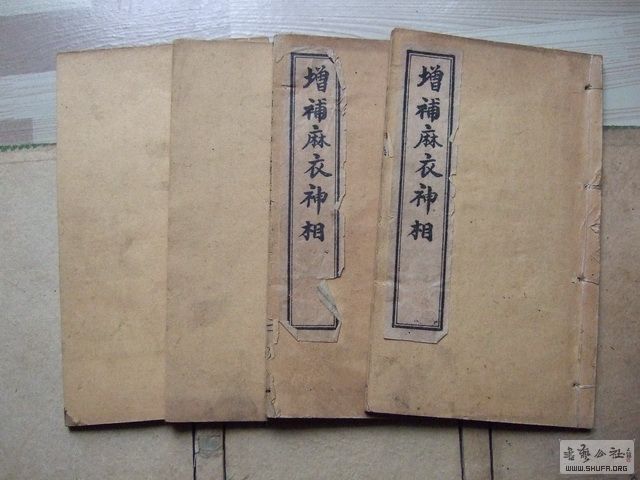 增補麻衣神相
增補麻衣神相
WWW.SHUFA.ORG